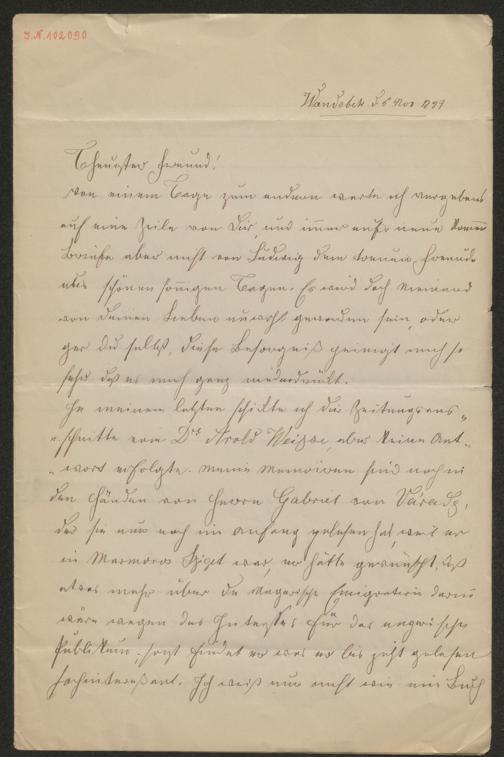 J.N. 102090
Wandsbek d 6 Nov 1899
Theuerster Freund!
Von einem Tage zum andern warte ich vergebens
auf eine Zeile von Dir, und immer aufs neue kommen
Briefe aber nicht von Ludwig dem treuen Freunde
aus schönen sonnigen Tagen. Es wird doch Niemand
von Deinen Lieben unwohl geworden sein, oder
gar Du selbst, diese Besorgniß peinigt mich so
sehr daß es mich ganz niederdrückt.
In meinem letzten schickte ich die Zeitungsaus„
„schnitte von Dr. Arold aber keine Ant„
„wort erfolgte. Meine Memoiren sind noch in
den Händen von Herrn Gabriel von Várady,
der sie nur noch im Anfang gelesen hat, weil er
in Marmoros Sziget war, er hätte gewünscht, daß
etwas mehr über die Ungarische Emigration darin
wäre wegen des Interesses für das ungarische
Publikum, sonst findet er was er bis jetzt gelesen
hochinteressant. Ich weiß nun nicht wie ein Buch